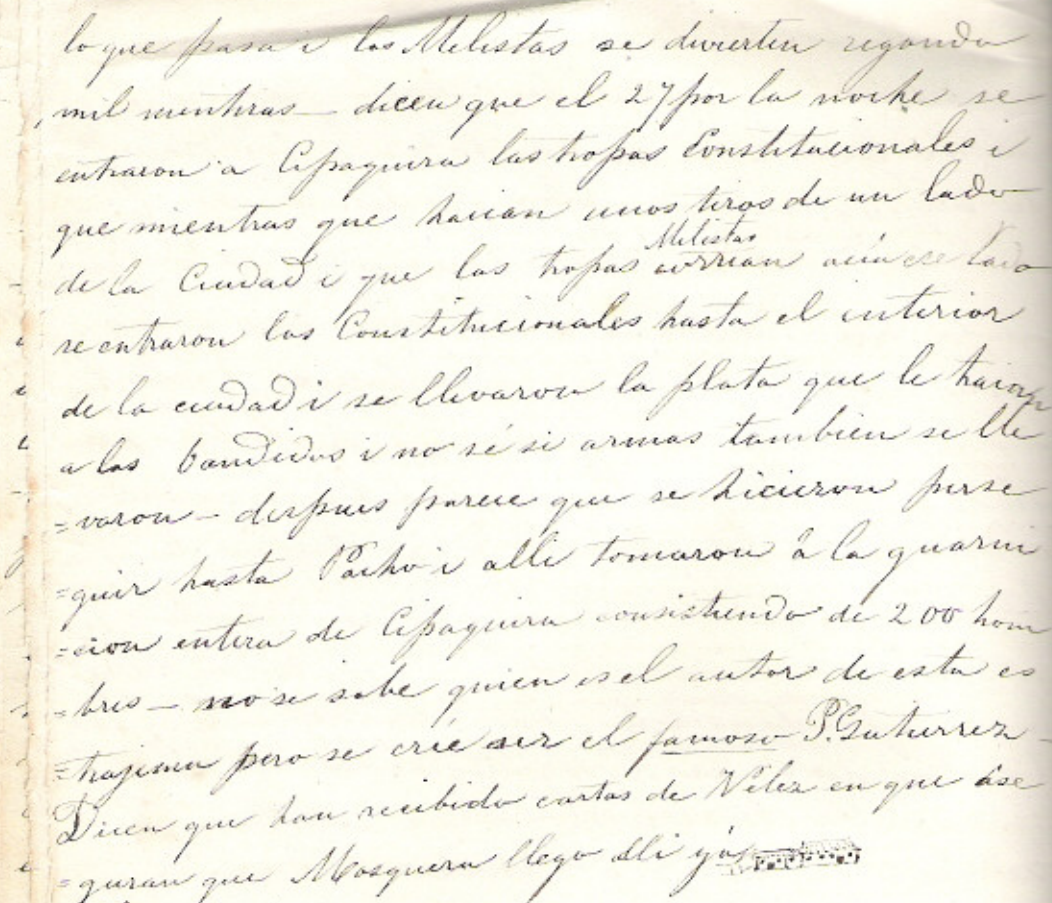 lo que pasa i los Melistas se divierten regando
mil mentiras — dicen que el 27 por la noche se
entraron a Cipaquira las tropas Constitucionales i
que mientras que hacian unos tiros de un lado
de la Ciudad i que las tropas Melistas corrian acia ese lado
se entraron los Constitucionales hasta el interior
de la ciudad i se llevaron la plata que le traian
a los bandidos i no sé si armas tambien se lle
=varon — despues parece que se hicieron perse
=guir hasta Pacho i alli tomaron á la guarni
=cion entera de Cipaquira consistiendo de 200 hom
=bres — no se sabe quien es el autor de esta es
=trajema pero se crée ser el famoso P. Gutierrez —
Dicen que han recibido cartas de Vélez en que ase
=guran que Mosquera llego alli yá